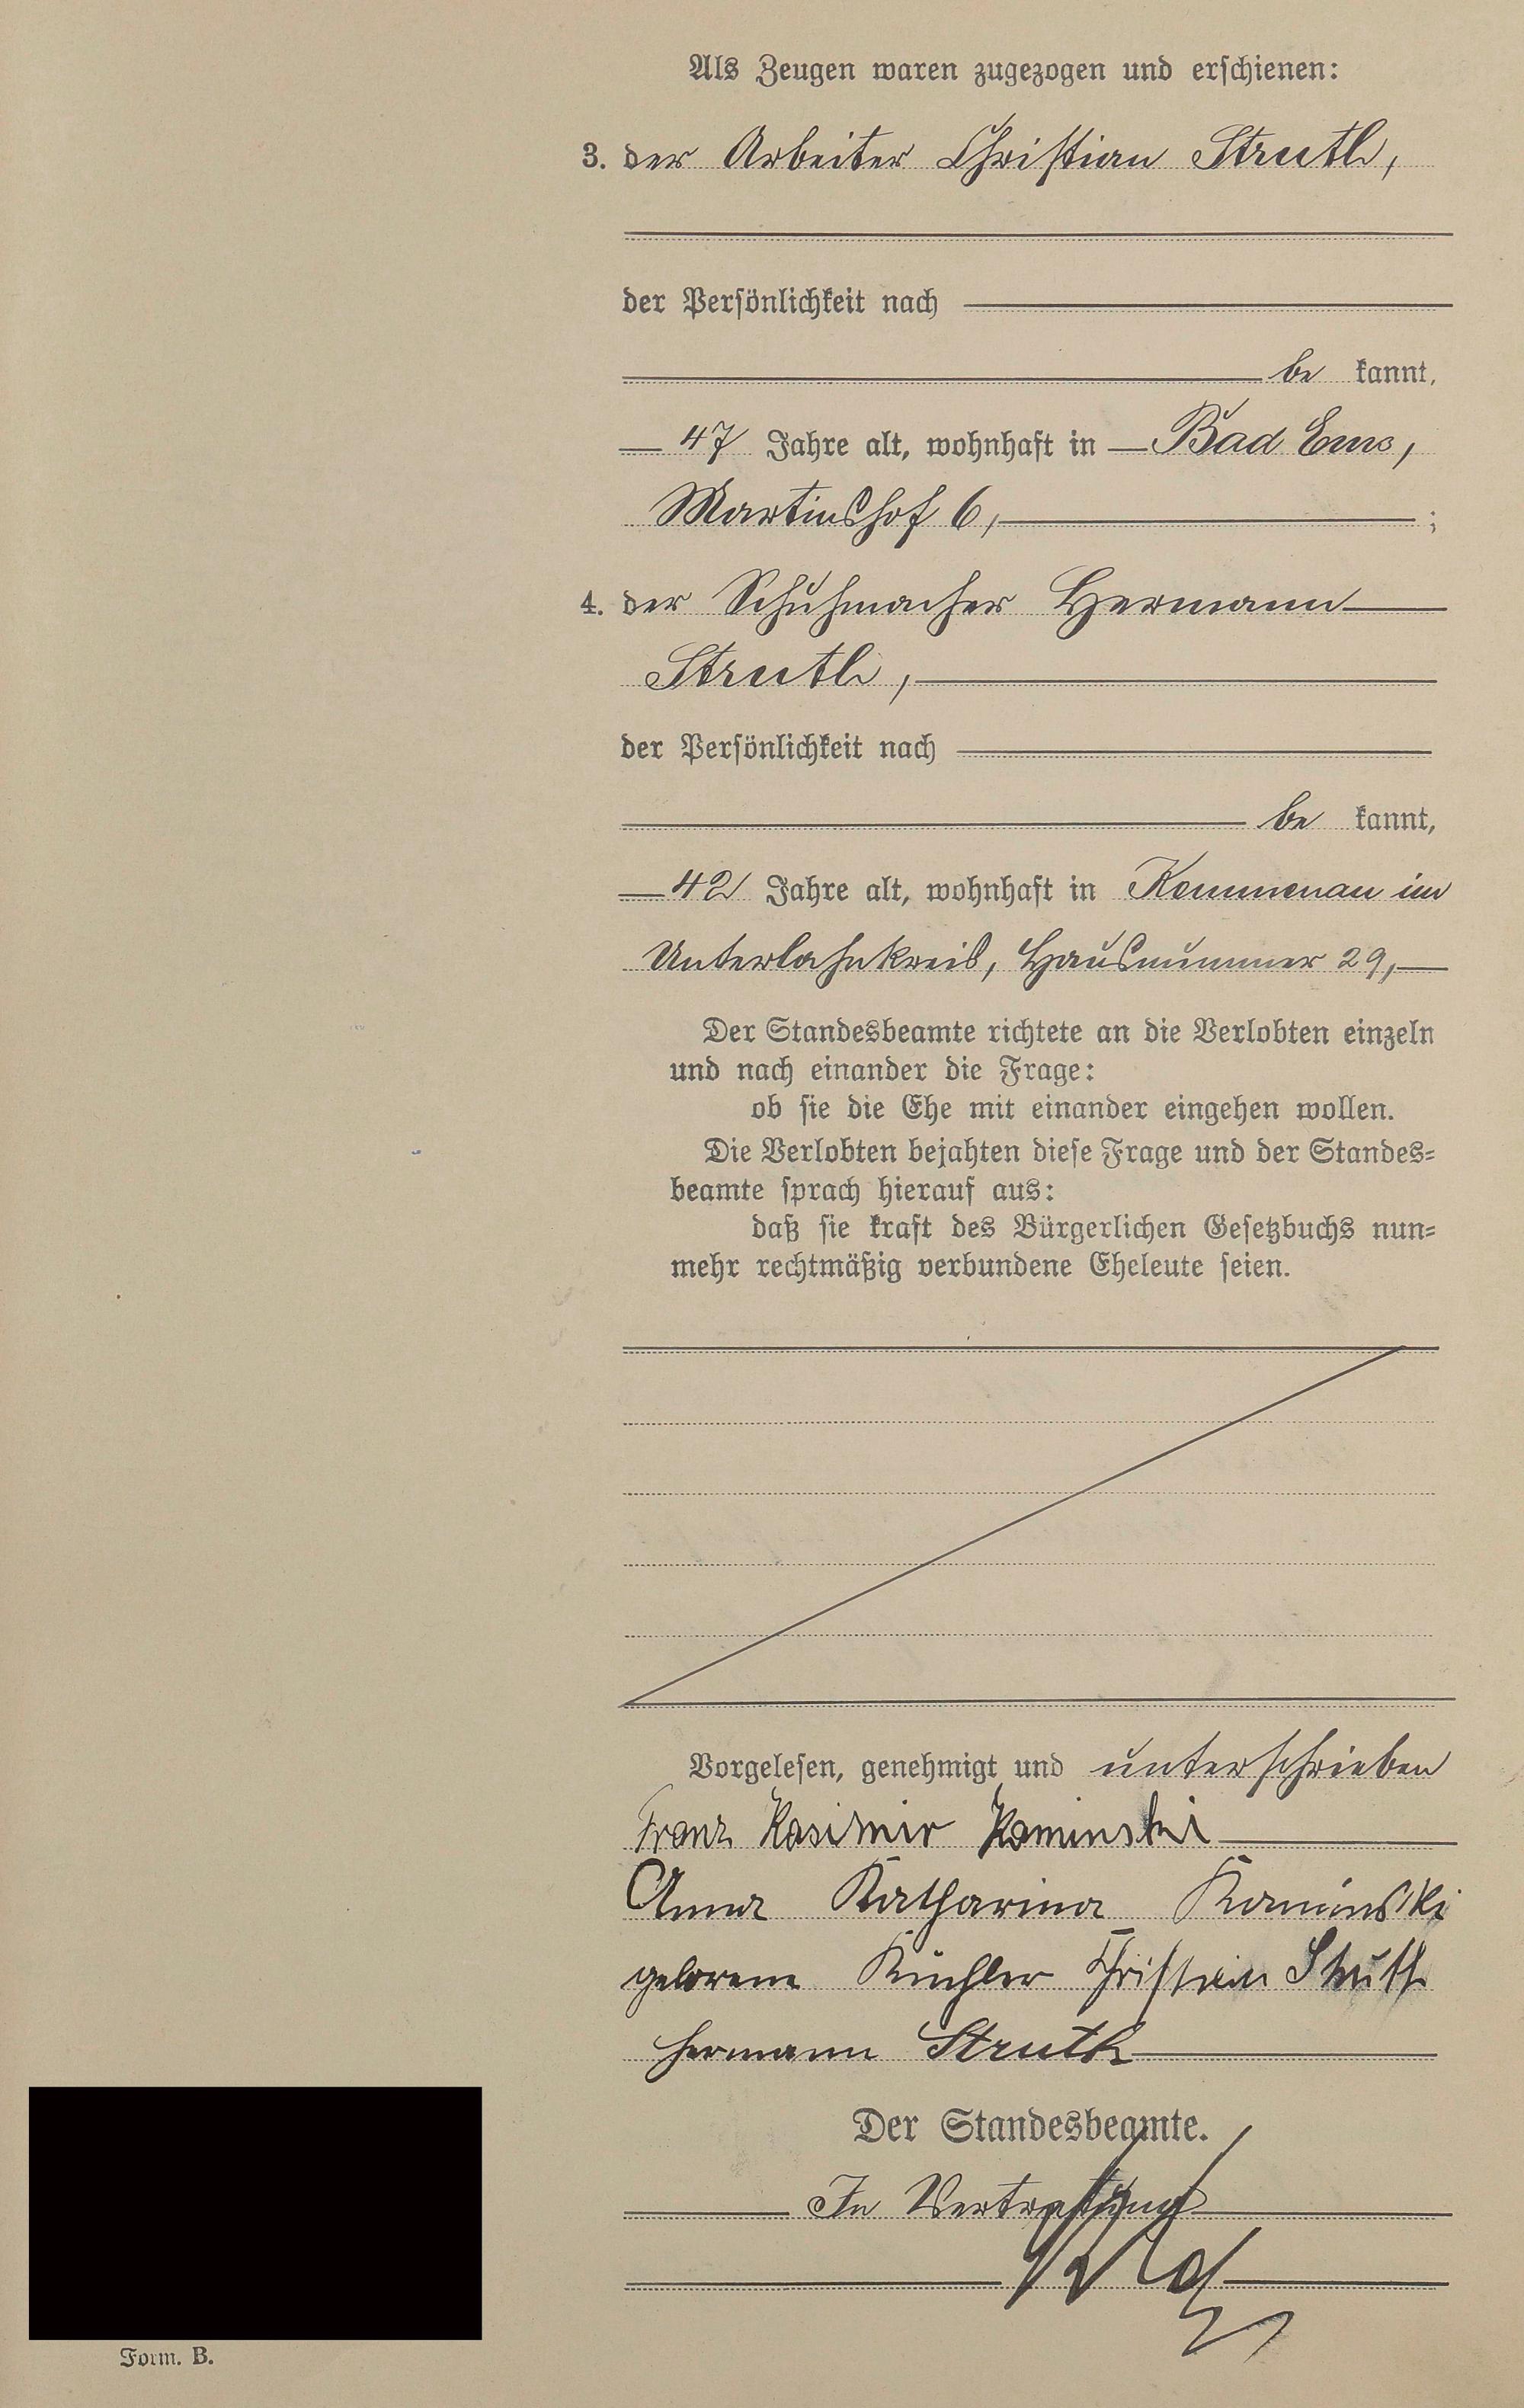 Als Zeugen waren zugezogen und erschienen:
3. der Arbeiter Christian Struth,
der Persönlichkeit nach
be kannt,
47 Jahre alt, wohnhaft in Bad Ems,
Martinshof 6, ;
4. der Schuhmacher Hermann
Struth,
der Persönlichkeit nach
be kannt,
42 Jahre alt, wohnhaft in Kemmenau im
Unterlahnkreis, Hausnummer 29,
Der Standesbeamte richtete an die Verlobten einzeln
und nach einander die Frage:
ob sie die Ehe mit einander eingehen wollen.
Die Verlobten bejahten diese Frage und der Standes=
beamte sprach hierauf aus:
daß sie kraft des Bürgerlichen Gesetzbuchs nun=
mehr rechtmäßig verbundene Eheleute seien.
Vorgelesen, genehmigt und unterschrieben
Franz Kasimir Kaminski
Anna Katharina Kaminski
geborene Küchler Christian Struth
Hermann Struth
Der Standesbeamte.
In Vertretung
Form. B.